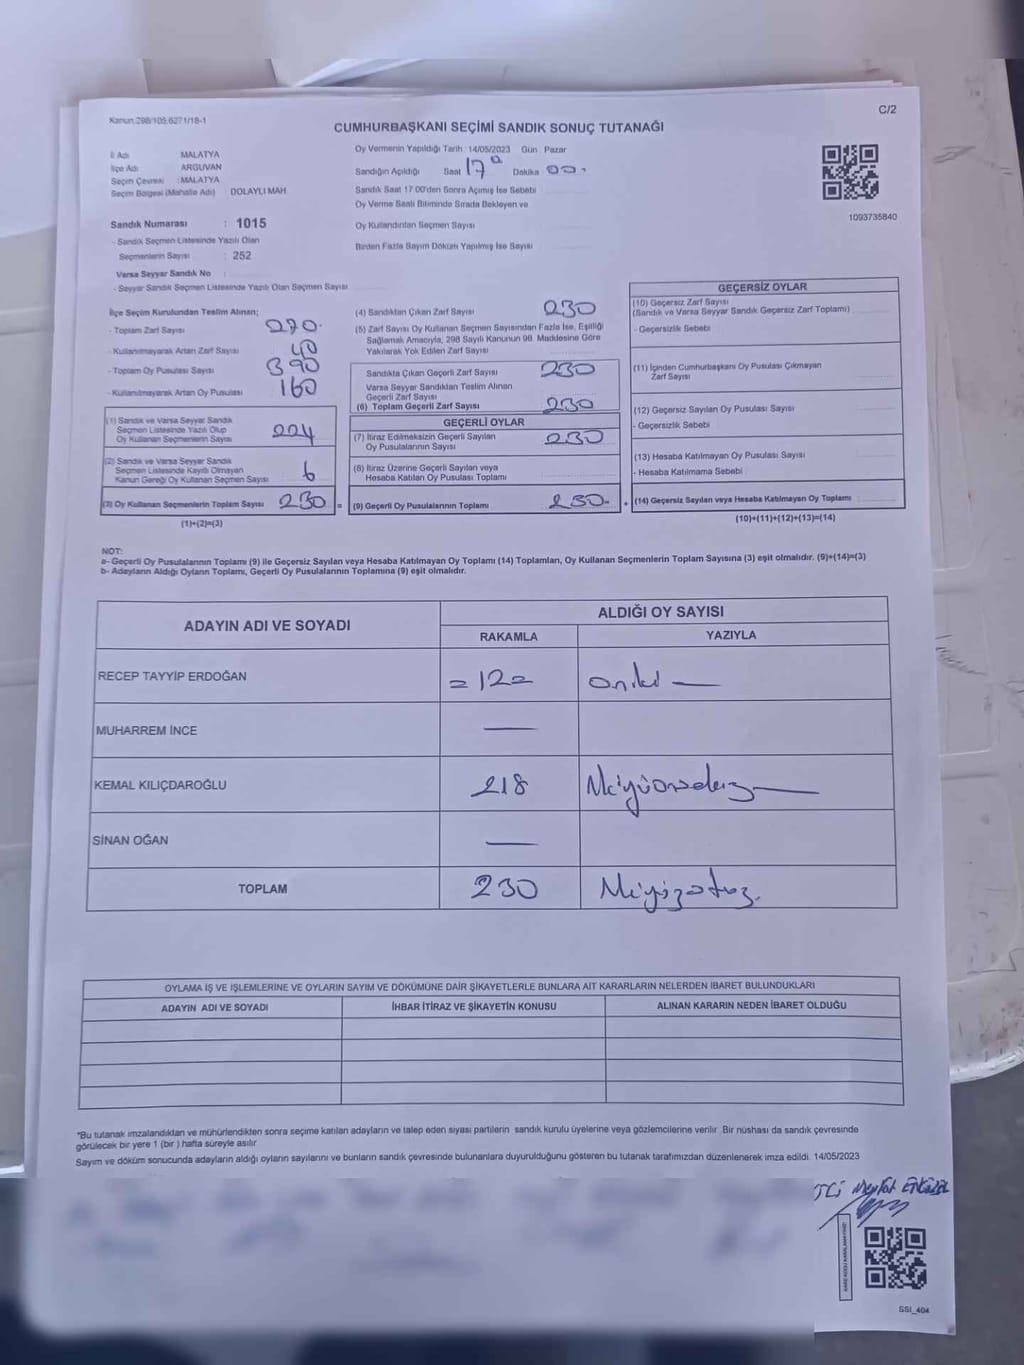 C/2
Kanun:298/105,6271/18-1
CUMHURBAŞKANI SEÇİMİ SANDIK SONUÇ TUTANAĞI
İl Adı MALATYA
İlçe Adı ARGUVAN
Seçim Çevresi : MALATYA
Seçim Bölgesi (Mahalle Adı) DOLAYLI MAH.
Sandık Numarası : 1015
- Sandık Seçmen Listesinde Yazılı Olan
Seçmenlerin Sayısı : 252
Varsa Seyyar Sandık No :
- Seyyar Sandık Seçmen Listesinde Yazılı Olan Seçmen Sayısı
Oy Vermenin Yapıldığı Tarih : 14/05/2023 Gün : Pazar
Sandığın Açıldığı Saat 17 Dakika 00
Sandık Saat 17:00'den Sonra Açımış İse Sebebi
Oy Verme Saati Bitiminde Sırada Bekleyen ve
Oy Kullandırılan Seçmen Sayısı
Birden Fazla Sayım Döküm Yapılmış İse Sayısı
1093735840
İlçe Seçim Kurulundan Teslim Alınan;
- Toplam Zarf Sayısı 270
- Kullanılmayarak Artan Zarf Sayısı 40
- Toplam Oy Pusulası Sayısı 390
- Kullanılmayarak Artan Oy Pusulası 160
(1) Sandık ve Varsa Seyyar Sandık
Seçmen Listesinde Yazılı Olup
Oy Kullanan Seçmenlerin Sayısı 224
(2) Sandık ve Varsa Seyyar Sandık
Seçmen Listesinde Kayıtlı Olmayan
Kanun Gereği Oy Kullanan Seçmen Sayısı 6
(3) Oy Kullanan Seçmenlerin Toplam Sayısı 230 =
(1)+(2)=(3)
(4) Sandıktan Çıkan Zarf Sayısı 230
(5) Zarf Sayısı Oy Kullanan Seçmen Sayısından Fazla İse, Eşitliği
Sağlamak Amacıyla, 298 Sayılı Kanunun 98. Maddesine Göre
Yakılarak Yok Edilen Zarf Sayısı
Sandıkta Çıkan Geçerli Zarf Sayısı 230
Varsa Seyyar Sandıktan Teslim Alınan
Geçerli Zarf Sayısı
(6) Toplam Geçerli Zarf Sayısı 230
GEÇERLİ OYLAR
(7) İtiraz Edilmeksizin Geçerli Sayılan
Oy Pusulalarının Sayısı 230
(8) İtiraz Üzerine Geçerli Sayılan veya
Hesaba Katılan Oy Pusulası Toplamı
(9) Geçerli Oy Pusulalarının Toplamı 230 +
GEÇERSİZ OYLAR
(10) Geçersiz Zarf Sayısı
(Sandık ve Varsa Seyyar Sandık Geçersiz Zarf Toplamı)
- Geçersizlik Sebebi
(11) İçinden Cumhurbaşkanı Oy Pusulası Çıkmayan
Zarf Sayısı
(12) Geçersiz Sayılan Oy Pusulası Sayısı
- Geçersizlik Sebebi
(13) Hesaba Katılmayan Oy Pusulası Sayısı
- Hesaba Katılmama Sebebi
(14) Geçersiz Sayılan veya Hesaba Katılmayan Oy Toplamı
(10)+(11)+(12)+(13)=(14)
NOT:
a- Geçerli Oy Pusulalarının Toplamı (9) ile Geçersiz Sayılan veya Hesaba Katılmayan Oy Toplamı (14) Toplamları, Oy Kullanan Seçmenlerin Toplam Sayısına (3) eşit olmalıdır. (9)+(14)=(3)
b- Adayların Aldığı Oyların Toplamı, Geçerli Oy Pusulalarının Toplamına (9) eşit olmalıdır.
ADAYIN ADI VE SOYADI ALDIĞI OY SAYISI
RAKAMLA YAZIYLA
RECEP TAYYİP ERDOĞAN =12= oniki
MUHARREM İNCE —
KEMAL KILIÇDAROĞLU 218 İkiyüzonsekiz
SİNAN OĞAN —
TOPLAM 230 İkiyüzotuz.
OYLAMA İŞ VE İŞLEMLERİNE VE OYLARIN SAYIM VE DÖKÜMÜNE DAİR ŞİKAYETLERLE BUNLARA AİT KARARLARIN NELERDEN İBARET BULUNDUKLARI
ADAYIN ADI VE SOYADI İHBAR İTİRAZ VE ŞİKAYETİN KONUSU ALINAN KARARIN NEDEN İBARET OLDUĞU
*Bu tutanak imzalandıktan ve mühürlendikten sonra seçime katılan adayların ve talep eden siyasi partilerin sandık kurulu üyelerine veya gözlemcilerine verilir. Bir nüshası da sandık çevresinde
görülecek bir yere 1 (bir ) hafta süreyle asılır.
Sayım ve döküm sonucunda adayların aldığı oyların sayılarını ve bunların sandık çevresinde bulunanlara duyurulduğunu gösteren bu tutanak tarafımızdan düzenlenerek imza edildi. 14/05/2023
SSI_404